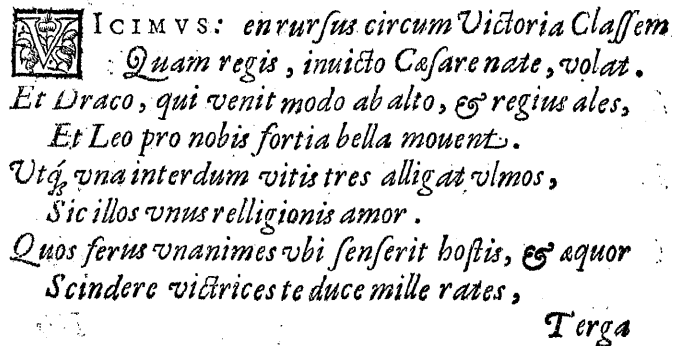 VICIMVS: en rurſus circum Victoria Claſſem
Quam regis, inuicto Cæſare nate, volat.
Et Draco, qui venit modo ab alto, & regius ales,
Et Leo pro nobis fortia bella mouent.
Vtq́; vna interdum vitis tres alligat vlmos,
Sic illos vnus relligionis amor.
Quos ferus vnanimes vbi ſenſerit hoſtis, & æquor
Scindere victrices te duce mille rates,
Terga